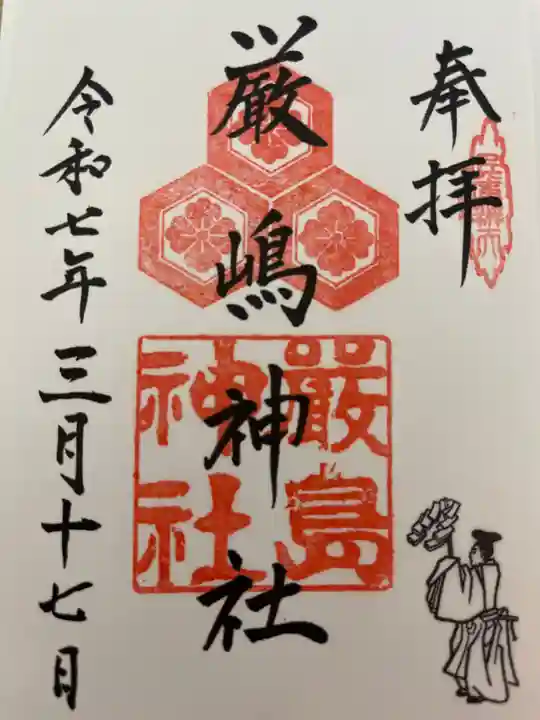 奉拝
厳嶋神社
嚴島
神社
令和七年三月十七日